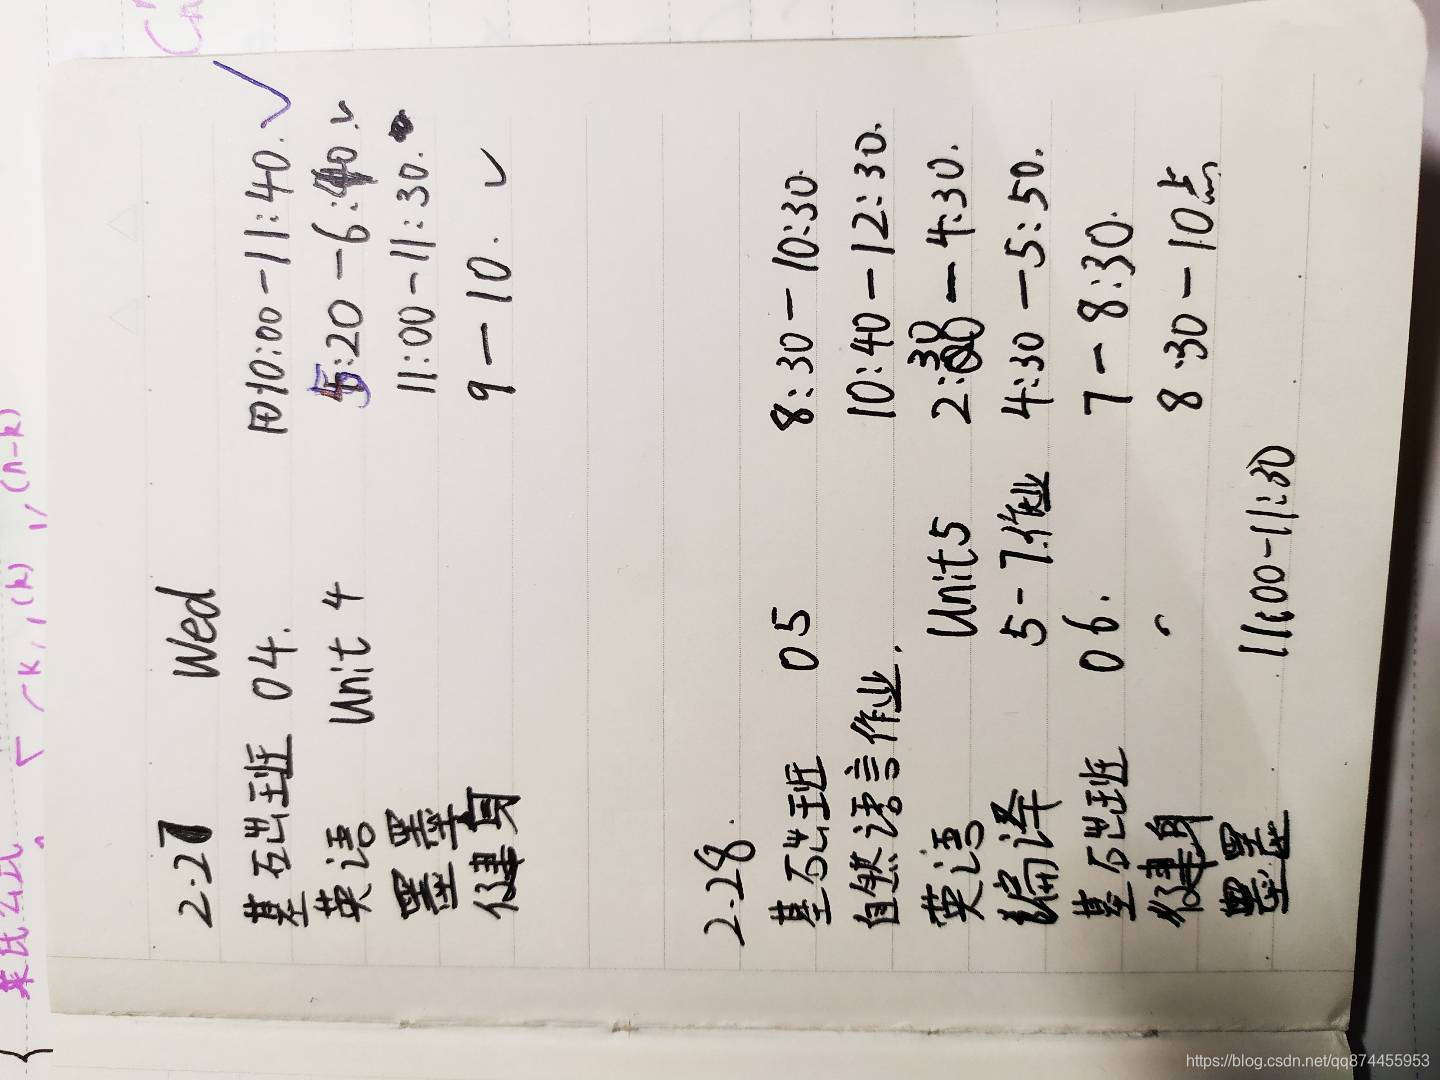 2.27 Wed
基础班 04. 10:00-11:40.
英语 Unit 4 5:20-6:40.
墨墨 11:00-11:30.
健身 9-10.
2.28.
基础班 05 8:30-10:30.
自然语言作业. 10:40-12:30.
英语 Unit5 2:30-4:30.
编译 5-7.作业 4:30-5:50.
基础班 06. 7-8:30.
健身 8:30-10点
墨墨 11:00-11:30
https://blog.csdn.net/qq874455953